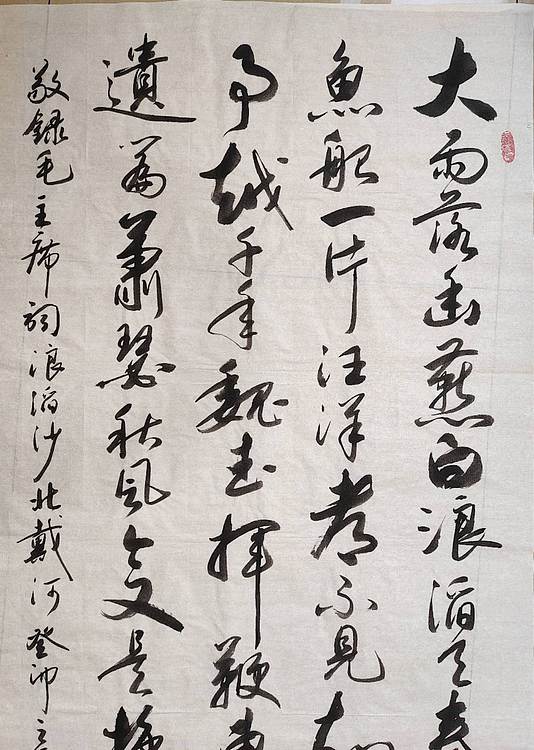 大雨落幽燕白浪滔天
魚船一片汪洋都不見
事越千年魏武揮鞭
遺篇蕭瑟秋風今又是換
敬録毛主席詞浪滔沙北戴河癸卯之